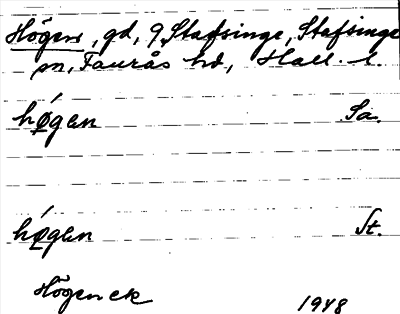 Högen, gd, 9, Stafsinge, Stafsinge
sn, Faurås hd, Hall. l.
hǿgen Sa.
hǿgen St.
Högen ek
1948